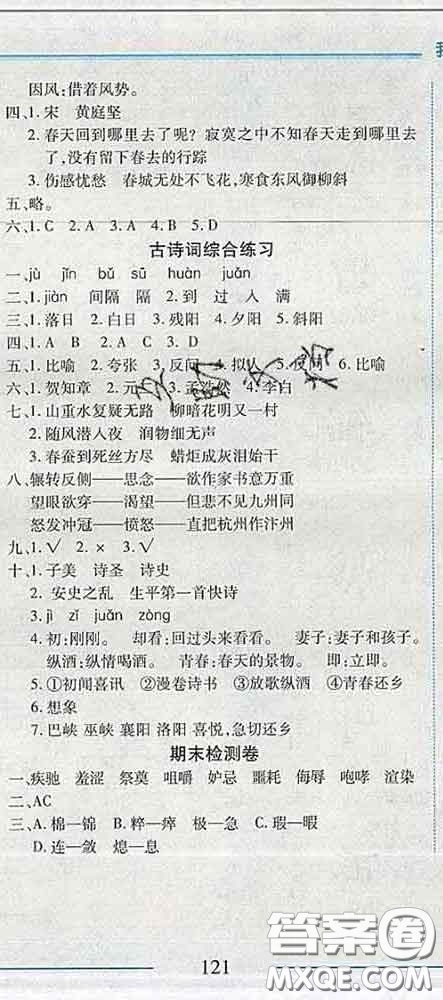 因风:借着风势。
四、1.宋 黄庭坚
2.春天回到哪里去了呢?寂寞之中不知春天走到哪里去了,没有留下春去的行踪
3.伤感忧愁 春城无处不飞花,寒食东风御柳斜
五、略。
六、1.C 2.A 3.A 4.B 5.D
古诗词综合练习
一、jù jǐn bǔ sū huàn juǎn
二、1.jiàn 间隔 隔 2.到 过 入 满
三、1.落日 2.白日 3.残阳 4.夕阳 5.斜阳
四、1.B 2.A 3.C 4.D
五、1.比喻 2.夸张 3.反问 4.拟人 5.反问 6.比喻
六、1.贺知章 2.元 3.孟浩然 4.李白
七、1.山重水复疑无路 柳暗花明又一村
2.随风潜入夜 润物细无声
3.春蚕到死丝方尽 蜡炬成灰泪始干
八、辗转反侧——思念——欲作家书意万重
望眼欲穿——渴望——但悲不见九州同
怒发冲冠——愤怒——直把杭州作汴州
九、1.√ 2.× 3.√
十、1.子美 诗圣 诗史
2.安史之乱 生平第一首快诗
3.jì zǐ juǎn zòng
4.初:刚刚。 却看:回过头来看看。 妻子:妻子和孩子。
纵酒:纵情喝酒。 青春:春天的景物。 即:立即。
5.①初闻喜讯 ②漫卷诗书 ③放歌纵酒 ④急切还乡
6.想象
7.巴峡 巫峡 襄阳 洛阳 喜悦,急切还乡
期末检测卷
一、疾驰 羞涩 祭奠 咀嚼 妒忌 噩耗 侮辱 咆哮 渲染
二、AC
三、A.棉—锦 B.粹—瘁 极—急 C.瑕—暇
D.连—敛 熄—息
121
答案圈
MXQE.COM